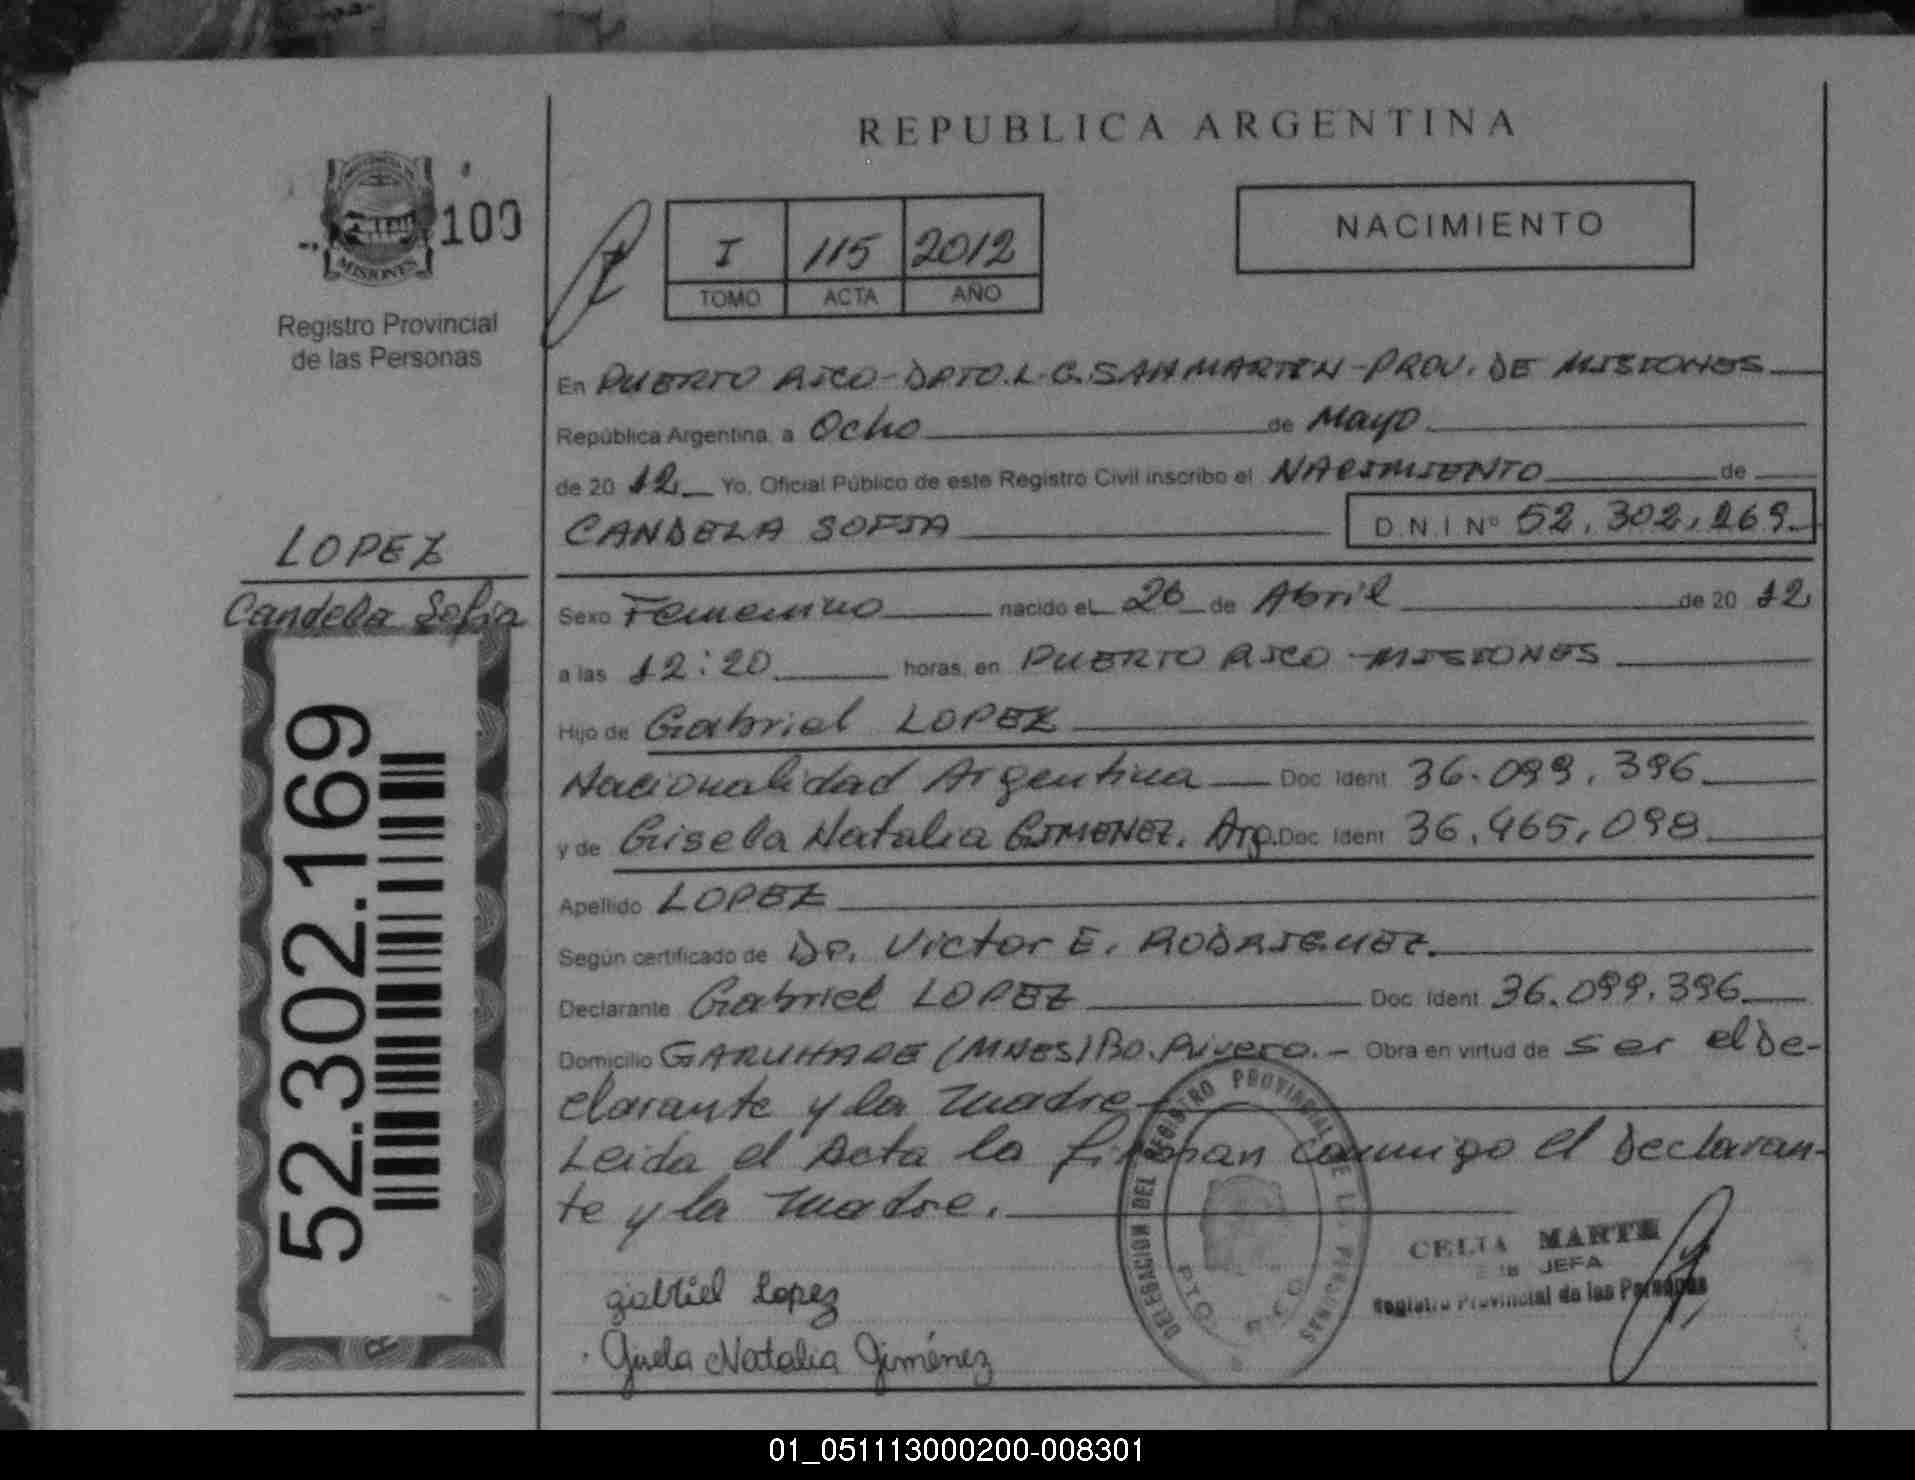 REPUBLICA ARGENTINA
MISIONES
100
Registro Provincial
de las Personas
I 115 2012
TOMO ACTA AÑO
NACIMIENTO
En PUERTO RICO-DPTO.L.G.SAN MARTIN-PROV. DE MISIONES
República Argentina, a Ocho de Mayo
de 20 12 Yo, Oficial Público de este Registro Civil inscribo el NACIMIENTO de
CANDELA SOFIA D.N.I Nº 52.302.169
LOPEZ
Candela Sofia
52.302.169
Sexo Femenino nacido el 26 de Abril de 20 12
a las 12:20 horas, en PUERTO RICO-MISIONES
Hijo de Gabriel LOPEZ
Nacionalidad Argentina Doc Ident 36.099.396
y de Gisela Natalia GIMENEZ. Arg. Doc Ident 36.465.098
Apellido LOPEZ
Según certificado de Dr. Victor E. RODRIGUEZ.
Declarante Gabriel LOPEZ Doc Ident 36.099.396
Domicilio GARUHAPE (MNES) Bo. Rivero.- Obra en virtud de ser el De-
clarante y la madre
Leida el Acta la firman conmigo el Declaran-
te y la madre.
DELEGACION DEL REGISTRO PROVINCIAL DE LAS PERSONAS
PTO. RICO
CELIA MARTE
JEFA
Registro Provincial de las Personas
gabriel Lopez
Gisela Natalia Giménez
01_051113000200-008301